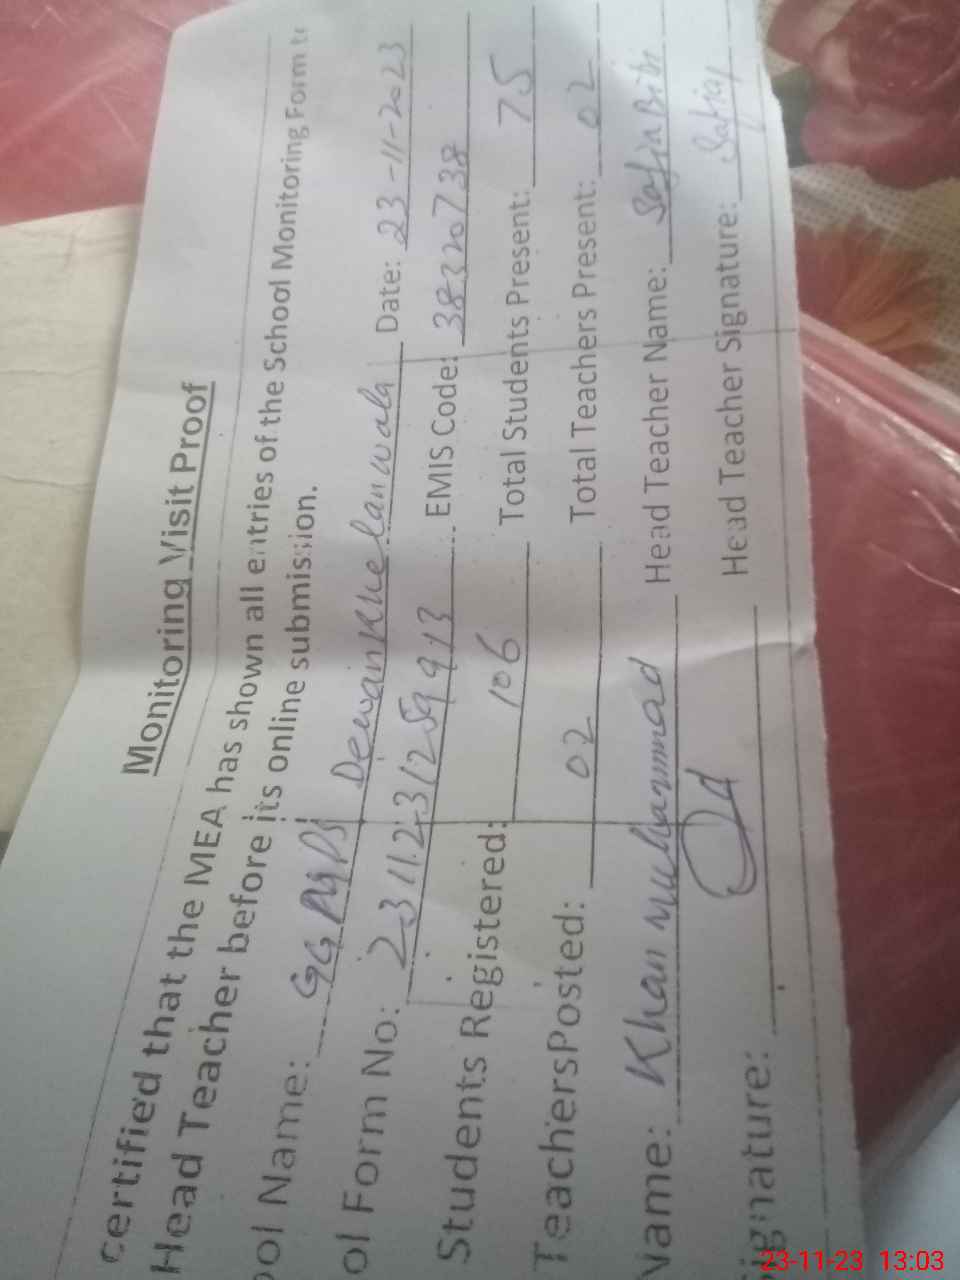 Monitoring Visit Proof
certified that the MEA has shown all entries of the School Monitoring Form to
Head Teacher before its online submission.
ool Name: GGPS Dewankhelanwala Date: 23-11-2023
ol Form No: EMIS Code: 38320738
Students Registered: 106 Total Students Present: 75
TeachersPosted: 02 Total Teachers Present: 02
Name: Khan Muhammad Head Teacher Name: Safia Bibi
ignature: Head Teacher Signature: Safia
23-11-23 13:03